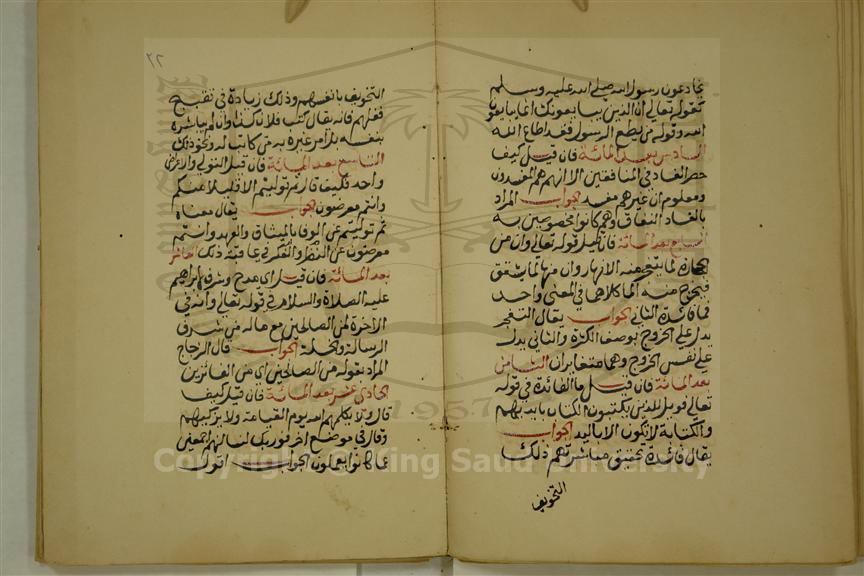 يخادعون رسول الله صلى الله عليه وسلم
كقوله تعالى ان الذين يبايعونك انما يبايعون
الله وقوله من يطع الرسول فقد اطاع الله
السادس بعد المائة فان قيل كيف
حصر الفساد في المنافقين الا انهم هم المفسدون
ومعلوم ان غيرهم مفسد الجواب المراد
بالفساد النفاق وهم كانوا مخصوصين به
السابع بعد المائة فان قيل قوله تعالى وان من
الحجارة لما يتفجر منه الانهار وان منها لما يشقق
فيخرج منه الماء كلاهما في المعنى واحد
فما فائدة الثاني الجواب يقال التفجر
يدل على الخروج بوصف الكثرة والثاني يدل
على نفس الخروج وهما متغايران الثامن
بعد المائة فان قيل ما الفائدة في قوله
تعالى فويل للذين يكتبون الكتاب بايديهم
والكتابة لا تكون الا باليد الجواب
يقال فائدة تحقيق مباشرتهم ذلك
التحريف
٢٢
التحريف بانفسهم وذلك زيادة في تقبيح
فعلهم فانه يقال كتب فلان كذا وان لم يباشره
بنفسه بل امر غيره به من كاتب له ونحو ذلك
التاسع بعد المائة فان قيل التولي والاعراض
واحد فكيف قال ثم توليتم الا قليلا منكم
وانتم معرضون الجواب يقال معناه
ثم توليتم عن الوفا بالميثاق والعهد وانتم
معرضون عن النظر والفكر في عاقبة ذلك العاشر
بعد المائة فان قيل اي مدح وشرف لابراهيم
عليه الصلاة والسلام في قوله تعالى وانه في
الاخرة لمن الصالحين مع ماله من شرف
الرسالة والخلة الجواب قال الزجاج
المراد بقوله من الصالحين اي من الفائزين
الحادي عشر بعد المائة فان قيل كيف
قال ولا يكلمهم الله يوم القيامة ولا يزكيهم
وقال في موضع اخر فوربك لنسألنهم اجمعين
عما كانوا يعملون الجواب اقول
1957
Copyright © King Saud University